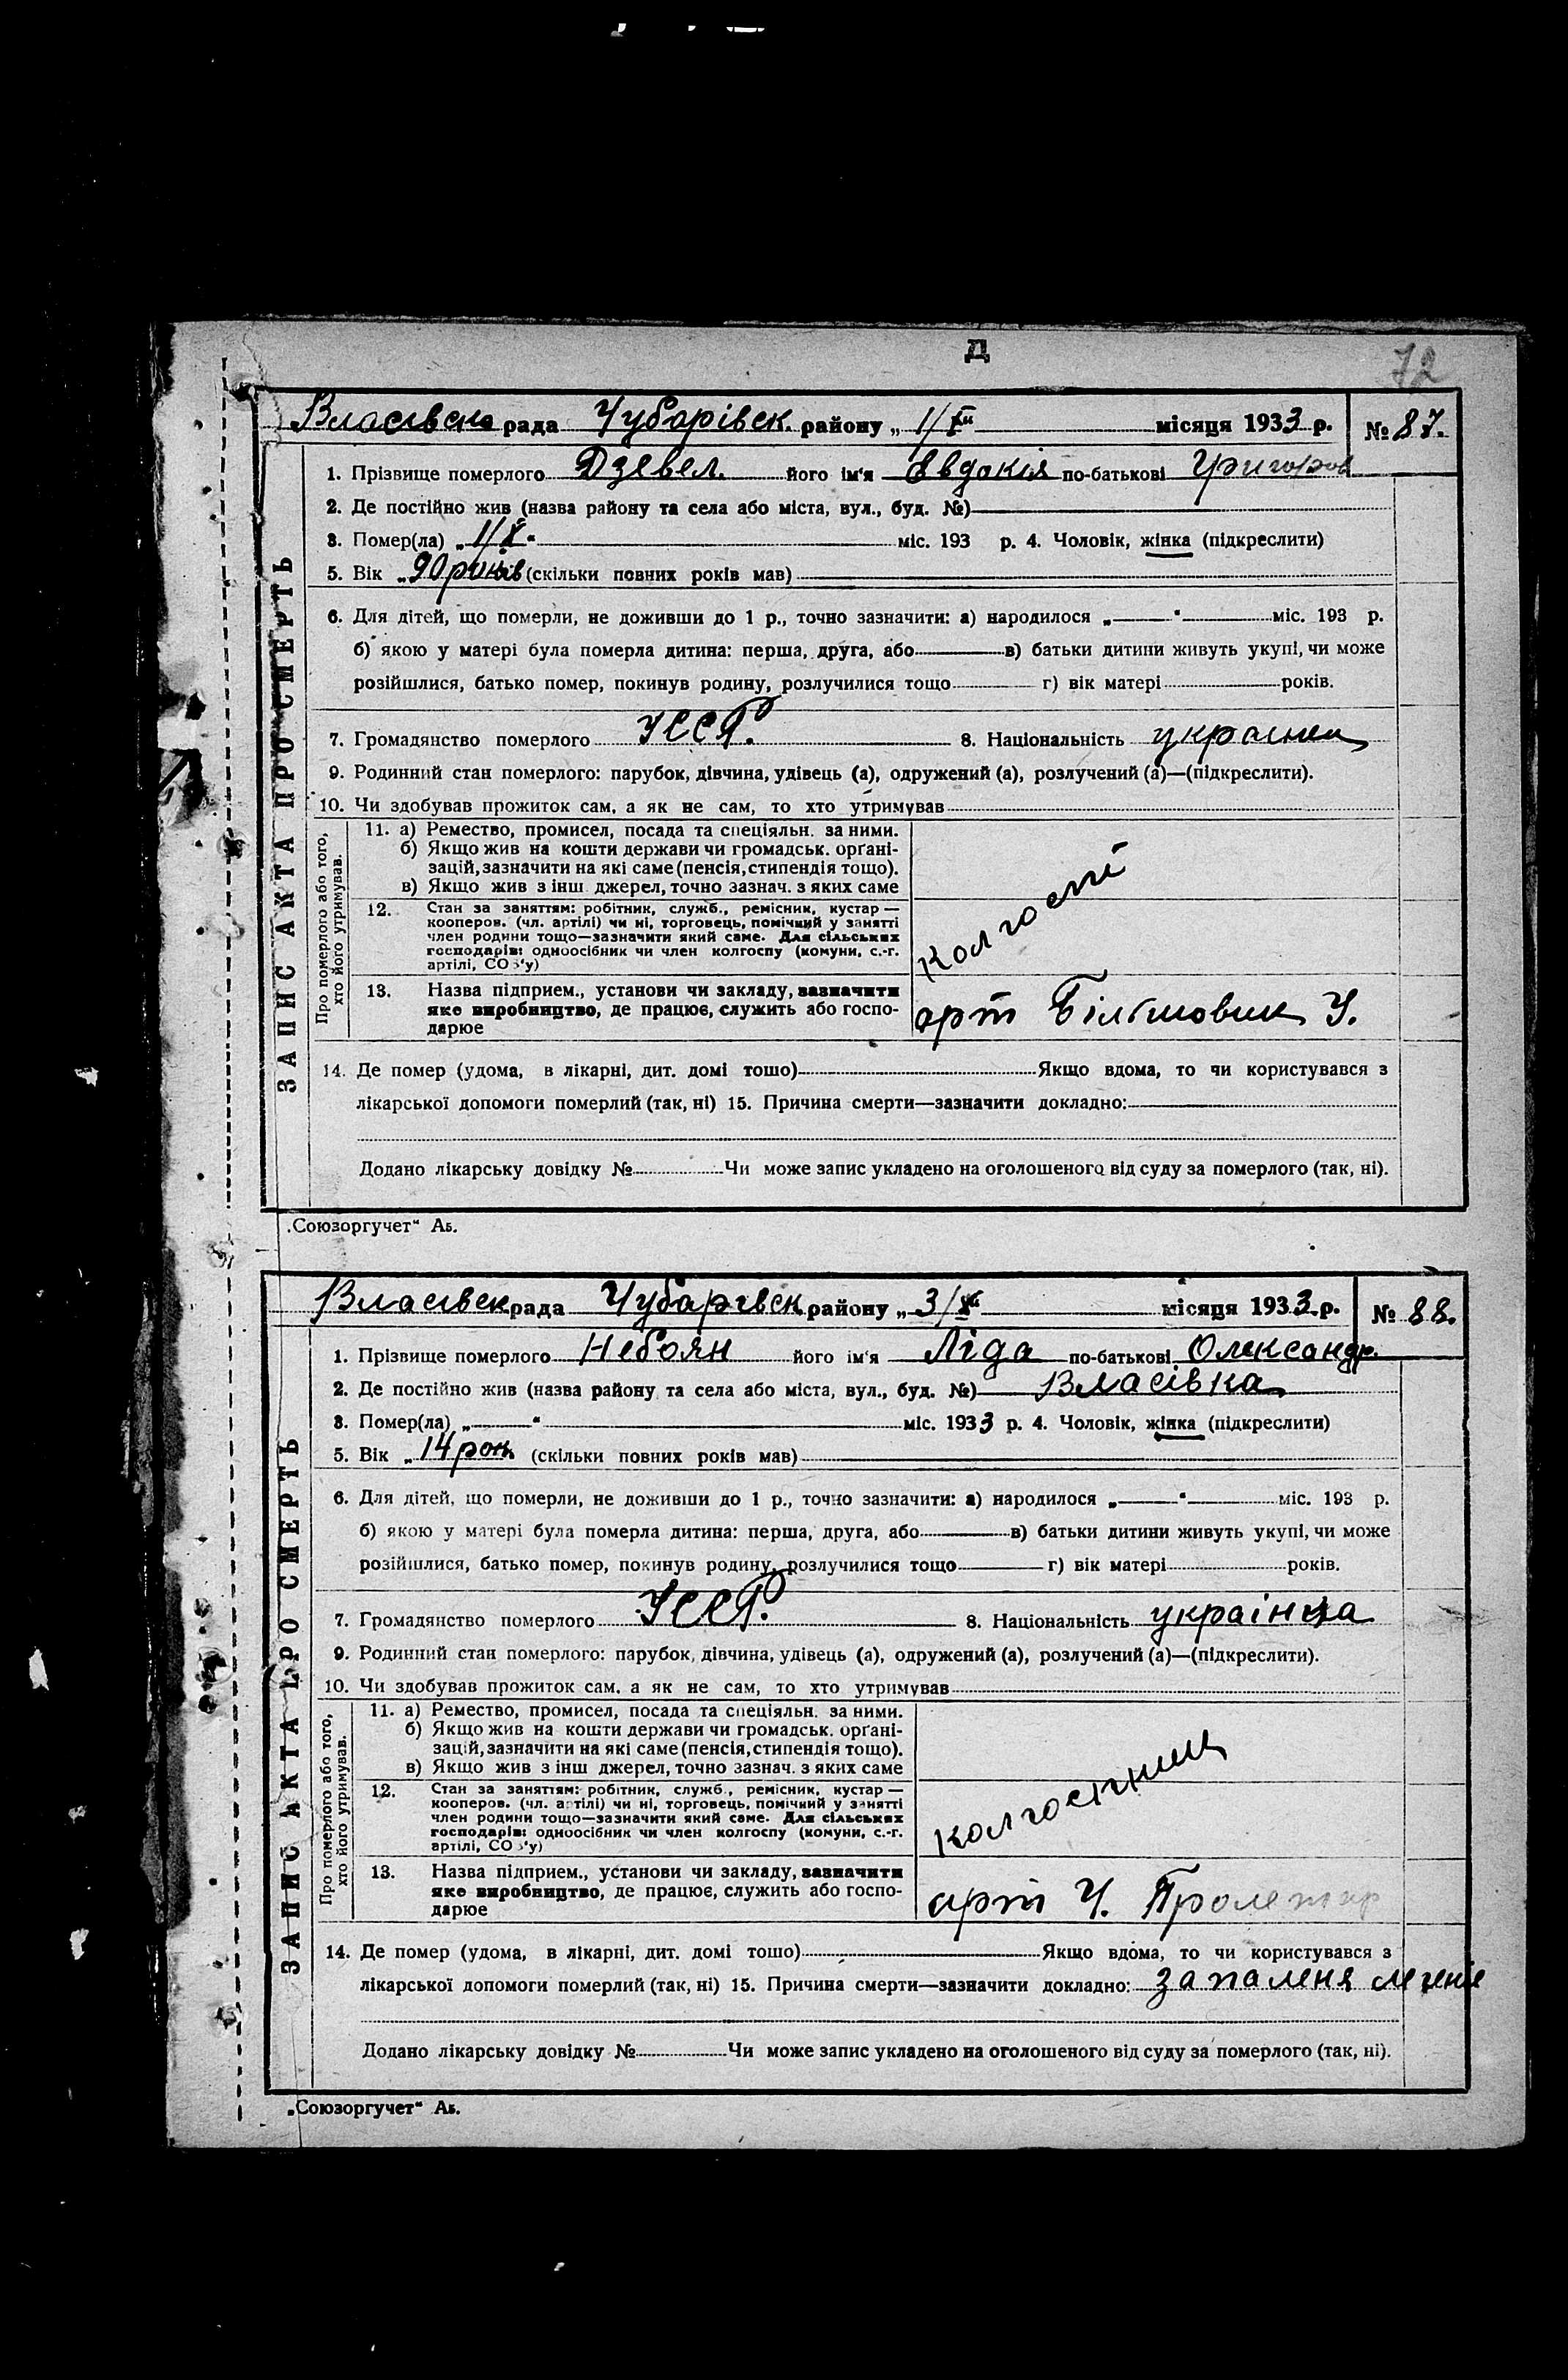 Д
72
Власівськ рада Чубарівск. району „ 1/X місяця 1933 р. № 87.
ЗАПИС АКТА ПРО СМЕРТЬ
1. Прізвище померлого Дзевел. його ім'я Евдокія по-батькові Григоров
2. Де постійно жив (назва району та села або міста, вул., буд. №)
3. Помер(ла) „ 1/X " міс. 193 р. 4. Чоловік, жінка (підкреслити)
5. Вік „ 90 років (скільки повних років мав)
6. Для дітей, що померли, не доживши до 1 р., точно зазначити: а) народилося „ " міс. 193 р.
б) якою у матері була померла дитина: перша, друга, або в) батьки дитини живуть укупі, чи може
розійшлися, батько помер, покинув родину, розлучилися тощо г) вік матері років.
7. Громадянство померлого УССР. 8. Національність украінка
9. Родинний стан померлого: парубок, дівчина, удівець (а), одружений (а), розлучений (а)—(підкреслити).
10. Чи здобував прожиток сам, а як не сам, то хто утримував
Про померлого або того,
хто його утримував.
11. а) Ремество, промисел, посада та спеціяльн. за ними.
б) Якщо жив на кошти держави чи громадськ. орґані-
зацій, зазначити на які саме (пенсія, стипендія тощо).
в) Якщо жив з інш джерел, точно зазнач. з яких саме
12. Стан за заняттям: робітник, служб., ремісник, кустар —
кооперов. (чл. артілі) чи ні, торговець, помічний у занятті
член родини тощо—зазначити який саме. Для сільських
господарів: одноосібник чи член колгоспу (комуни, с.-г.
артілі, СО 'у)
13. Назва підприєм., установи чи закладу, зазначити
яке виробництво, де працює, служить або госпо-
дарює
арт Більшовик У.
14. Де помер (удома, в лікарні, дит. домі тошо) Якщо вдома, то чи користувався з
лікарської допомоги померлий (так, ні) 15. Причина смерти—зазначити докладно:
Додано лікарську довідку № Чи може запис укладено на оголошеного від суду за померлого (так, ні).
„Союзоргучет" Аь.
Власівск рада Чубарівск району „ 3/X місяця 1933 р. № 88.
ЗАПИС АКТА ПРО СМЕРТЬ
1. Прізвище померлого Небоян його ім'я Ліда по-батькові Олександр.
2. Де постійно жив (назва району та села або міста, вул., буд. №) Власівка
3. Помер(ла) „ " міс. 1933 р. 4. Чоловік, жінка (підкреслити)
5. Вік „ 14 рок (скільки повних років мав)
6. Для дітей, що померли, не доживши до 1 р., точно зазначити: а) народилося „ " міс. 193 р.
б) якою у матері була померла дитина: перша, друга, або в) батьки дитини живуть укупі, чи може
розійшлися, батько помер, покинув родину, розлучилися тощо г) вік матері років.
7. Громадянство померлого УССР. 8. Національність украінка
9. Родинний стан померлого: парубок, дівчина, удівець (а), одружений (а), розлучений (а)—(підкреслити).
10. Чи здобував прожиток сам, а як не сам, то хто утримував
Про померлого або того,
хто його утримував.
11. а) Ремество, промисел, посада та спеціяльн. за ними.
б) Якщо жив на кошти держави чи громадськ. орґані-
зацій, зазначити на які саме (пенсія, стипендія тощо).
в) Якщо жив з інш джерел, точно зазнач. з яких саме
12. Стан за заняттям: робітник, служб., ремісник, кустар —
кооперов. (чл. артілі) чи ні, торговець, помічний у занятті
член родини тощо—зазначити який саме. Для сільських
господарів: одноосібник чи член колгоспу (комуни, с.-г.
артілі, СО 'у)
13. Назва підприєм., установи чи закладу, зазначити
яке виробництво, де працює, служить або госпо-
дарює
арт Ч. Пролетар
14. Де помер (удома, в лікарні, дит. домі тошо) Якщо вдома, то чи користувався з
лікарської допомоги померлий (так, ні) 15. Причина смерти—зазначити докладно: запаленя легенів
Додано лікарську довідку № Чи може запис укладено на оголошеного від суду за померлого (так, ні).
„Союзоргучет" Аь.